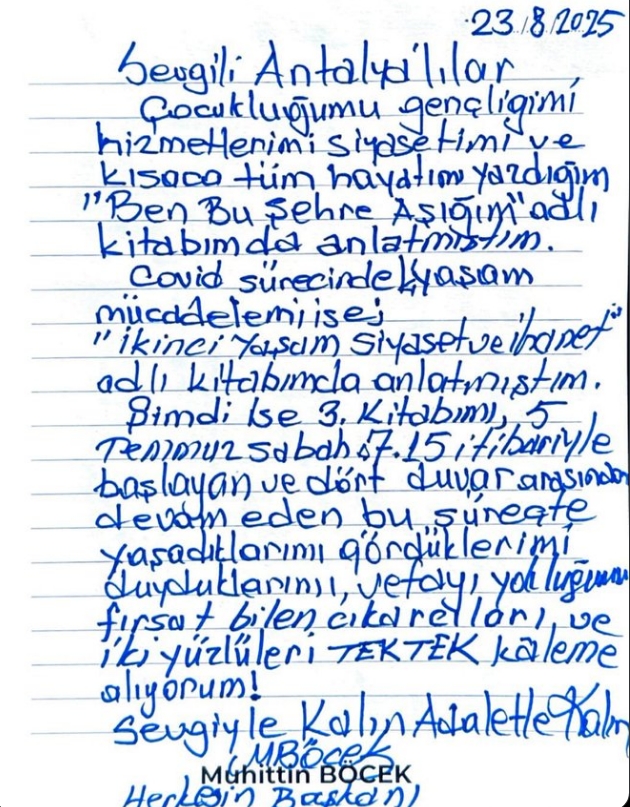 23/8/2025
Sevgili Antalya'lılar
Çocukluğumu gençliğimi
hizmetlerimi siyasetimi ve
kısaca tüm hayatımı yazdığım
"Ben Bu Şehre Aşığım" adlı
kitabımda anlatmıştım.
Covid sürecindeki yaşam
mücadelemi ise;
"ikinci Yaşam Siyaset ve ihanet"
adlı kitabımda anlatmıştım.
Şimdi İse 3. Kitabımı, 5
Temmuz sabahı 7.15 itibariyle
başlayan ve dört duvar arasından
devam eden bu süreçte
yaşadıklarımı gördüklerimi
duyduklarımı, vefayı yokluğumu
fırsat bilen çıkarcıları, ve
iki yüzlüleri TEK TEK kaleme
alıyorum!
Sevgiyle Kalın Adaletle Kalın
MBöcek
Muhittin BÖCEK
Herkesin Başkanı